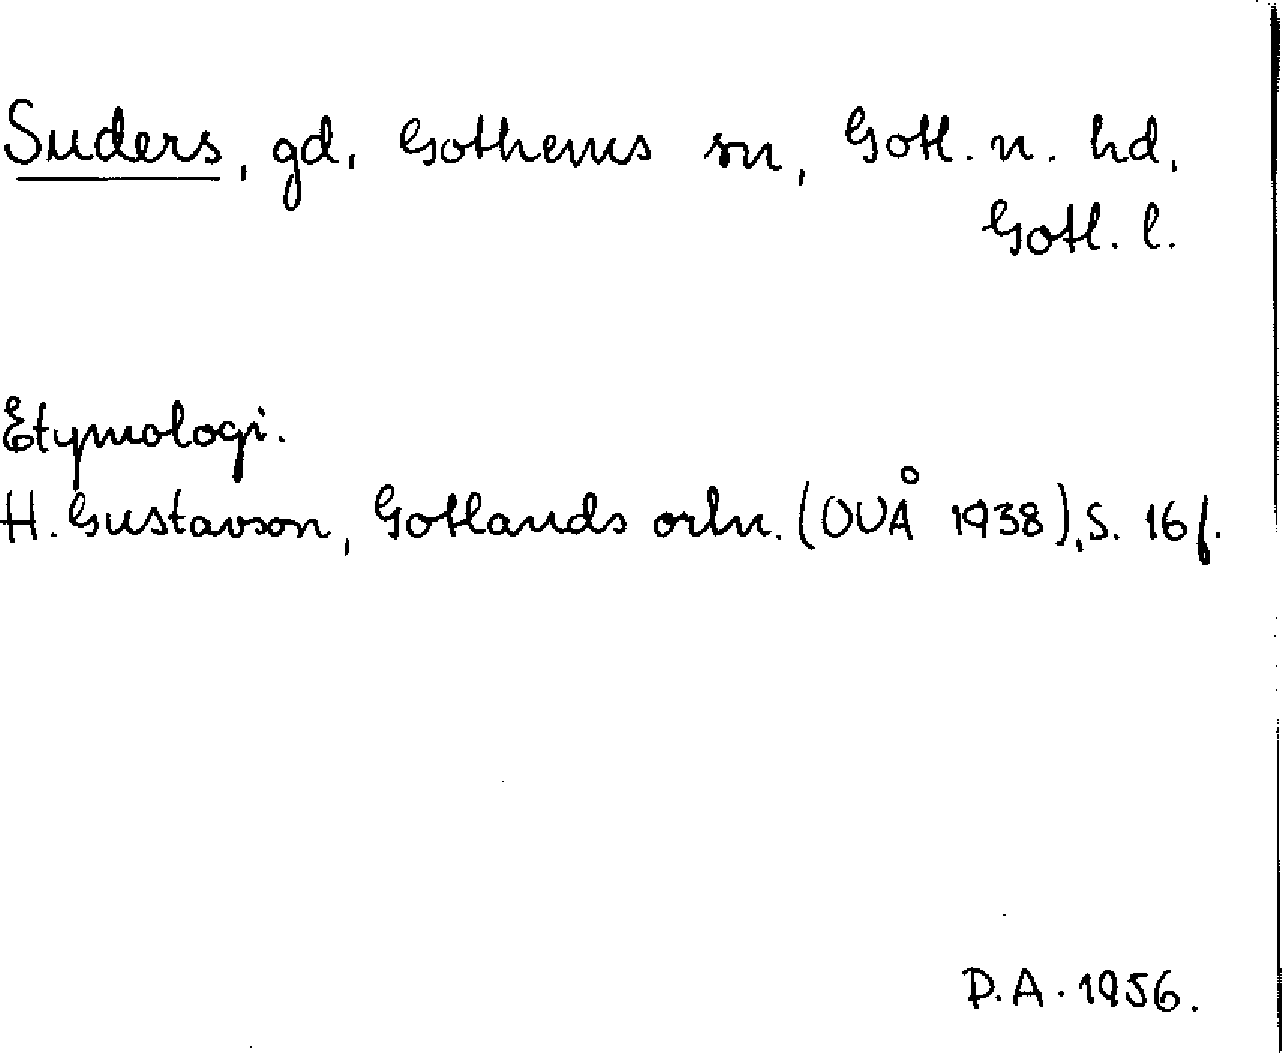 Suders, gd, Gothems sn, Gotl. n. hd,
Gotl. l.
Etymologi.
H. Gustavson, Gotlands ortn. (OUÅ 1938), S. 16 f.
D.A. 1956.